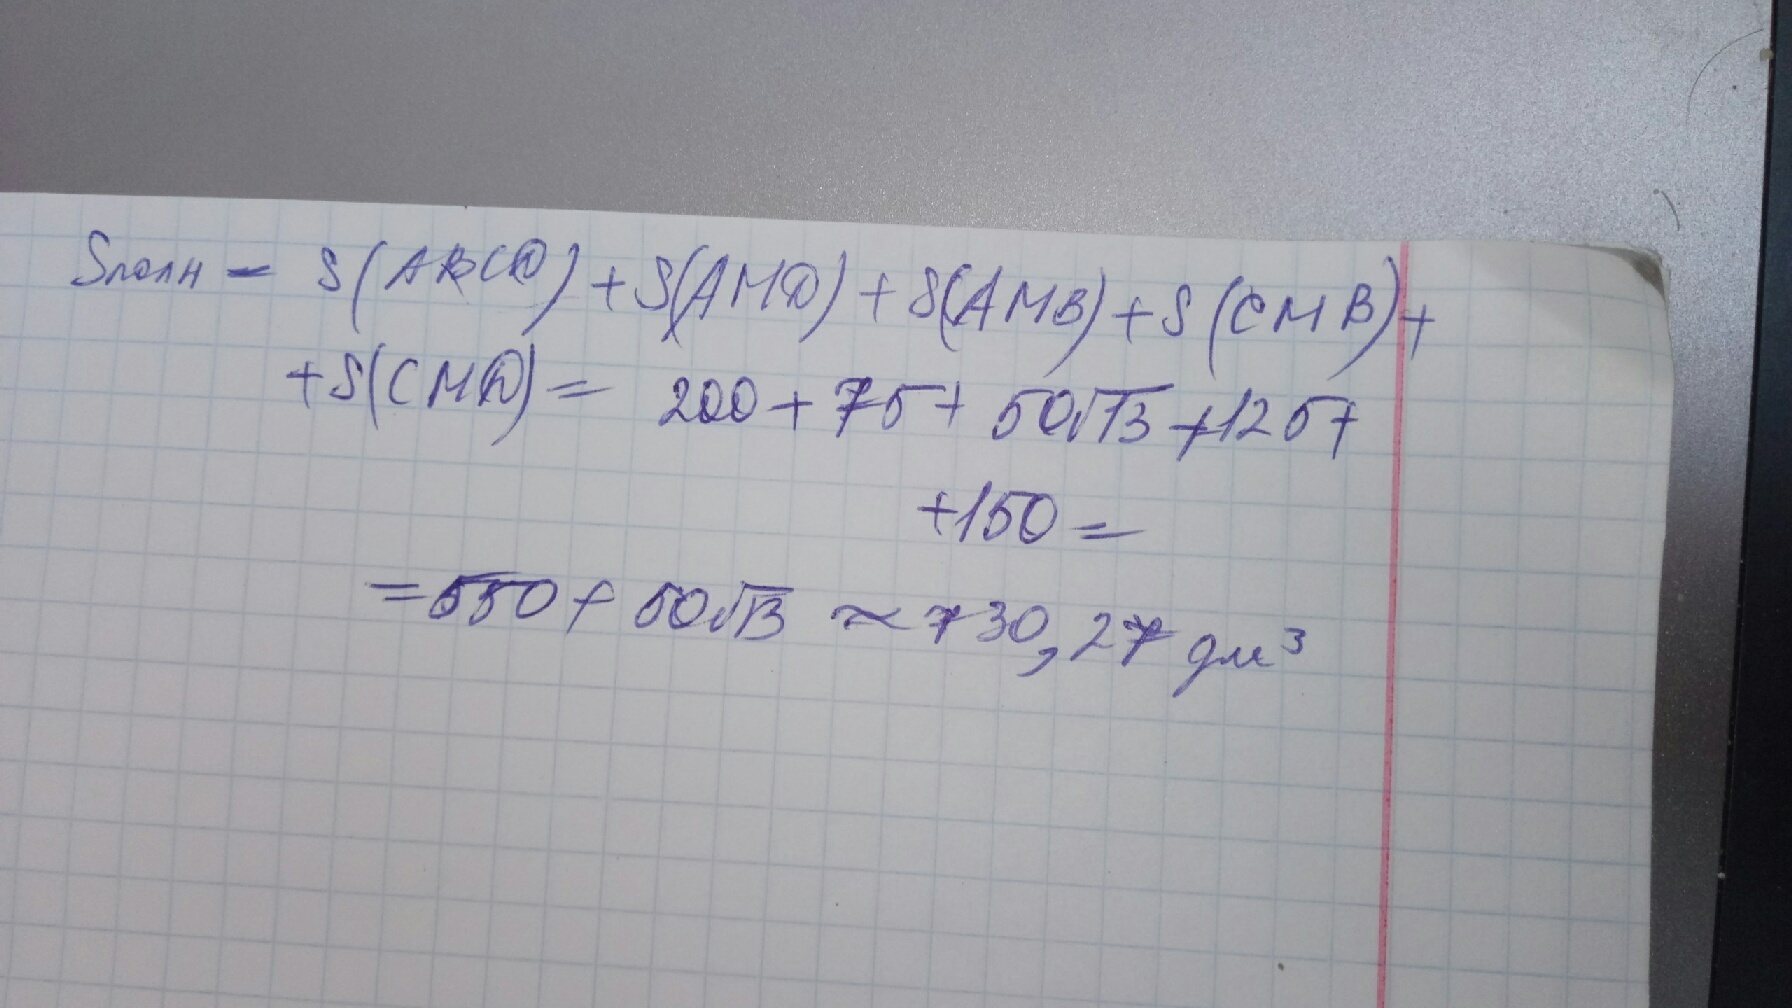 Sполн = S(ABCD)+S(AMD)+S(AMB)+S(CMB)+
+S(CMD)= 200+75+50√13+125+
+150=
=550+50√13≈730,27 дм³